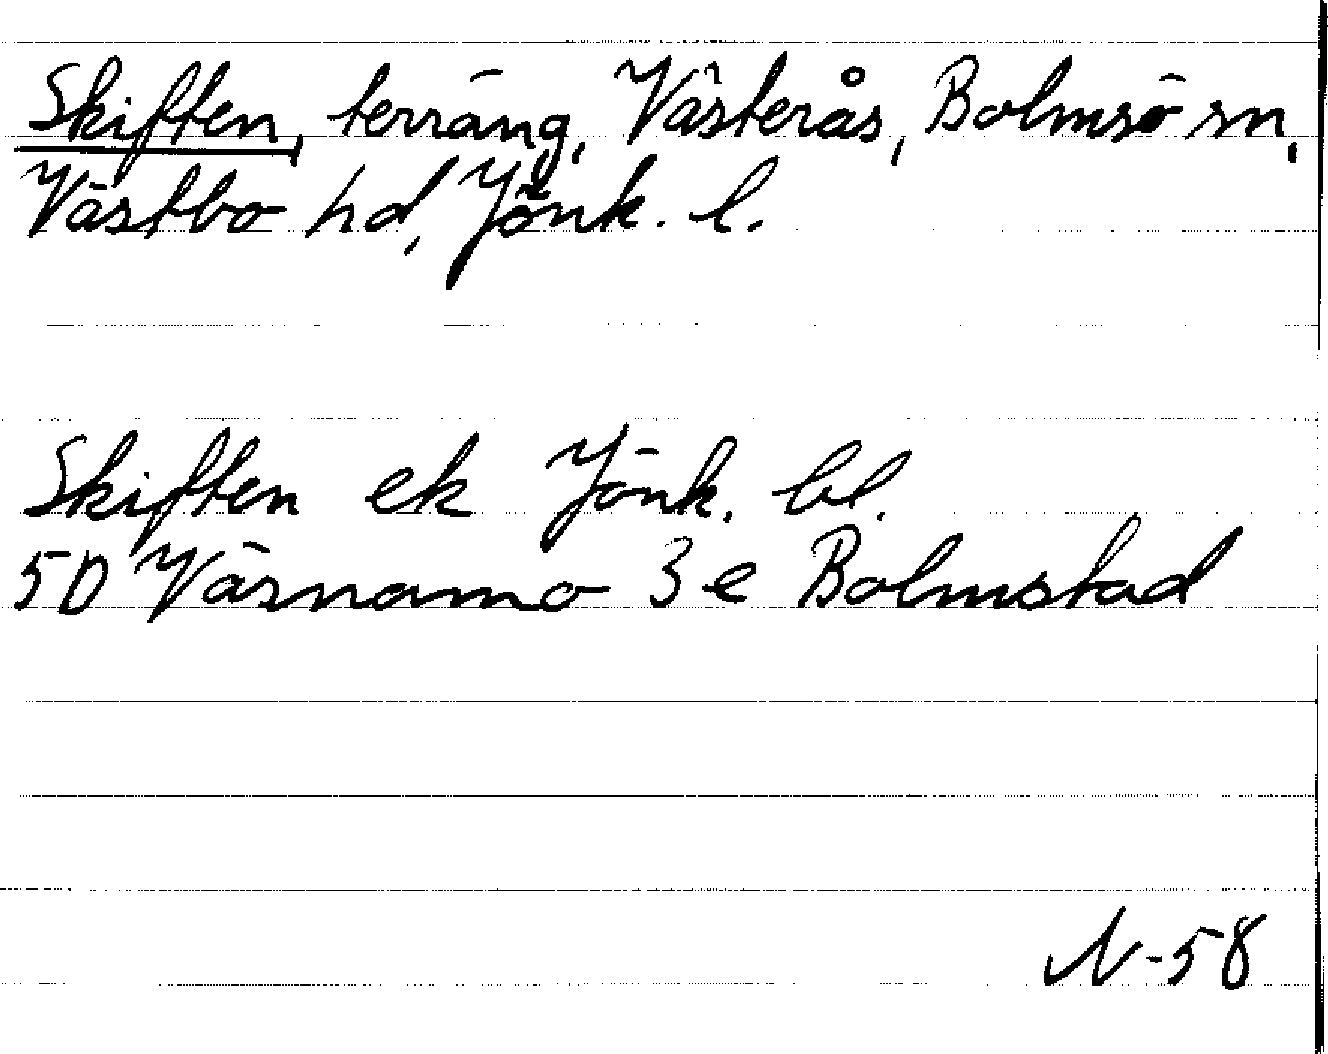 Skiften, terräng, Västerås, Bolmsö sn,
Västbo hd, Jönk. l.
Skiften ek Jönk. bl.
5D Värnamo 3e Bolmstad
N-58